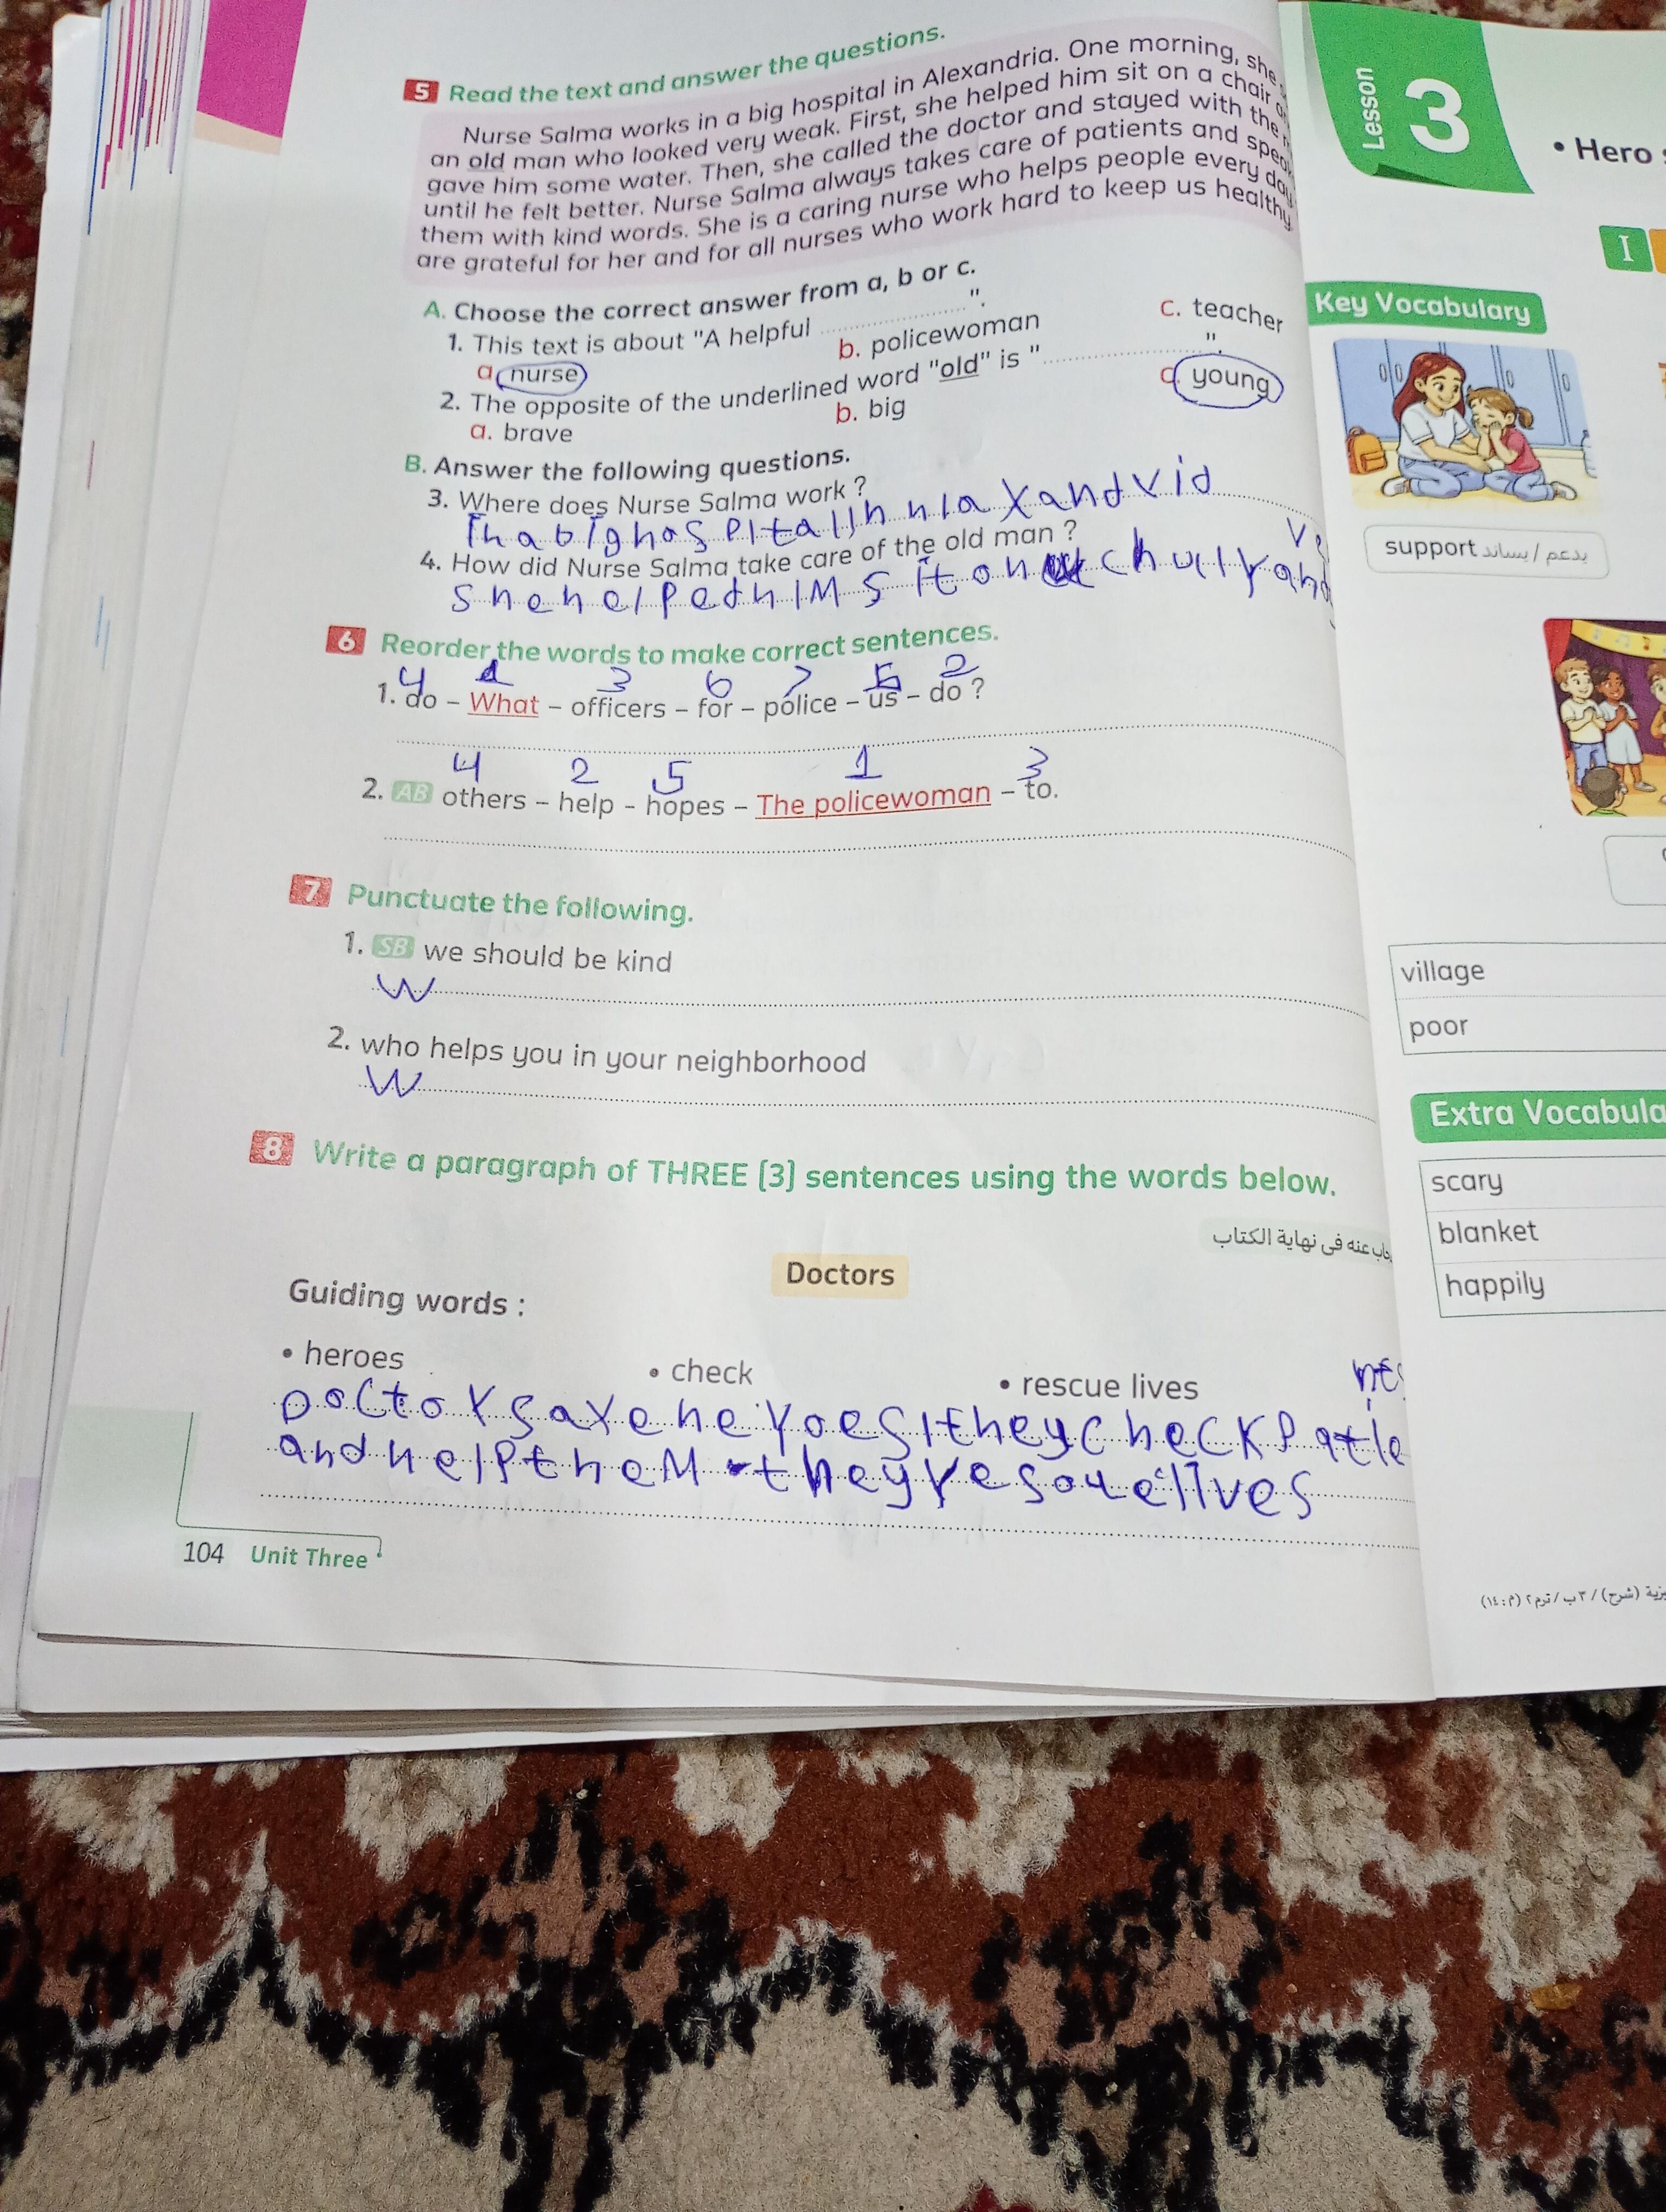 5 Read the text and answer the questions.
Nurse Salma works in a big hospital in Alexandria. One morning, she
an old man who looked very weak. First, she helped him sit on a chair
gave him some water. Then, she called the doctor and stayed with the
until he felt better. Nurse Salma always takes care of patients and
them with kind words. She is a caring nurse who helps people every day
are grateful for her and for all nurses who work hard to keep us healthy
A. Choose the correct answer from a, b or c.
1. This text is about "A helpful ".
a. nurse b. policewoman c. teacher
2. The opposite of the underlined word "old" is " ".
a. brave b. big c. young
B. Answer the following questions.
3. Where does Nurse Salma work ?
4. How did Nurse Salma take care of the old man ?
6 Reorder the words to make correct sentences.
4 1 3 6 7 5 2
1. do – What – officers – for – police – us – do ?
4 2 5 1 3
2. AB others – help – hopes – The policewoman – to.
7 Punctuate the following.
1. SB we should be kind
W
2. who helps you in your neighborhood
W
8 Write a paragraph of THREE (3) sentences using the words below.
عنه فى نهاية الكتاب
Doctors
Guiding words :
• heroes • check • rescue lives
and help them they
lives
104 Unit Three
Lesson 3
• Hero
I
Key Vocabulary
support يدعم / يساند
village
poor
Extra Vocabula
scary
blanket
happily
(شرح) / ٣ ب / ترم ٢ (م : ١٤)